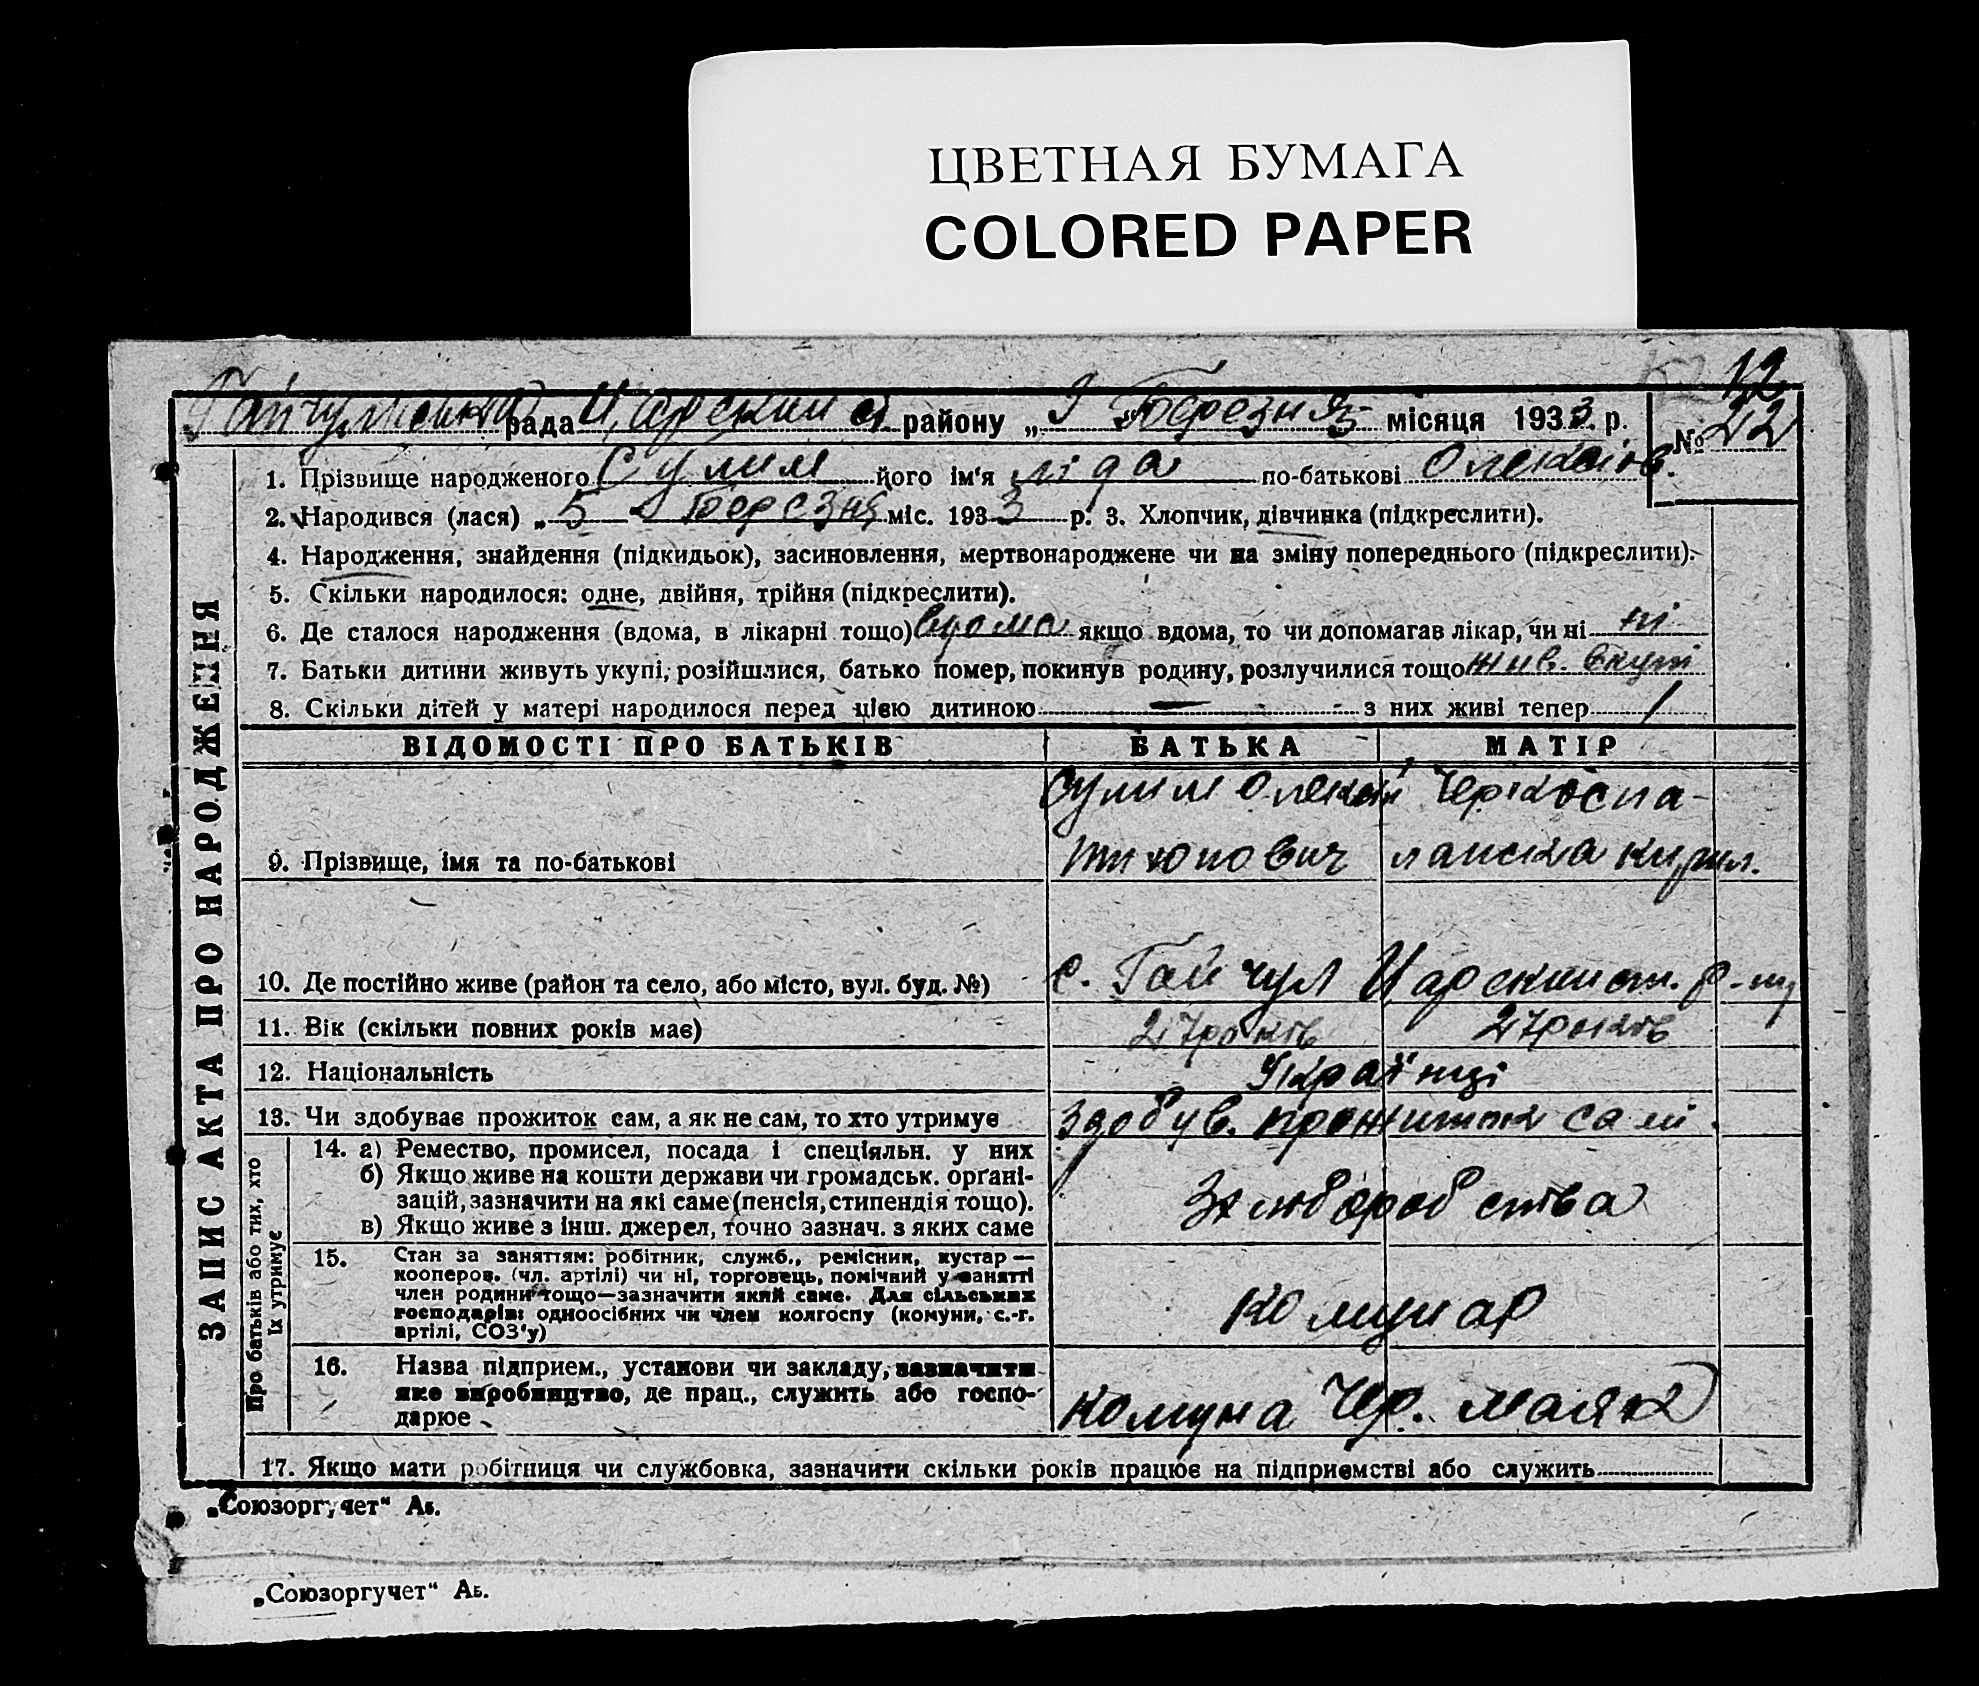 ЦВЕТНАЯ БУМАГА
COLORED PAPER
12
рада Царскин сі району „ Березня 3 місяця 1933. р. № 22
ЗАПИС АКТА ПРО НАРОДЖЕННЯ
1. Прізвище народженого Сулим його ім‘я ліда по-батькові Олексіїв.
2. Народився (лася) „ 5 Березня міс. 1933 р. 3. Хлопчик, дівчинка (підкреслити).
4. Народження, знайдення (підкидьок), засиновлення, мертвонароджене чи на зміну попереднього (підкреслити).
5. Скільки народилося: одне, двійня, трійня (підкреслити).
6. Де сталося народження (вдома, в лікарні тощо) вдома якщо вдома, то чи допомагав лікар, чи ні ні
7. Батьки дитини живуть укупі, розійшлися, батько помер, покинув родину, розлучилися тощо жив. вкупі
8. Скільки дітей у матері народилося перед цією дитиною — з них живі тепер 1
ВІДОМОСТІ ПРО БАТЬКІВ БАТЬКА МАТІР
Сулим Олексій
9. Прізвище, імя та по-батькові Кирил.
10. Де постійно живе (район та село, або місто, вул. буд. №) с. Гайчул Царскинст. р-ну
11. Вік (скільки повних років має) 27 років 27 років
12. Національність Українці
13. Чи здобуває прожиток сам, а як не сам, то хто утримує здобув. прожиток самі
Про батьків або тих, хто їх утримує
14. а) Ремество, промисел, посада і спеціяльн. у них
б) Якщо живе на кошти держави чи громадськ. орґані-
зацій, зазначити на які саме (пенсія, стипендія тощо).
в) Якщо живе з інш. джерел, точно зазнач. з яких саме
З хліборобства
15. Стан за заняттям: робітник, служб., ремісник, кустар —
кооперов. (чл. артілі) чи ні, торговець, помічний у занятті
член родини тощо—зазначити який саме. Для сільських
господарів: одноосібних чи член колгоспу (комуни, с.-г.
артілі, СОЗ‘у)
комунар
16. Назва підприєм., установи чи закладу, зазначити
яке виробництво, де прац., служить або госпо-
дарює
комуна Чер. маяк
17. Якщо мати робітниця чи службовка, зазначити скільки років працює на підприємстві або служить
„Союзоргучет“ Аб.
„Союзоргучет“ Аб.